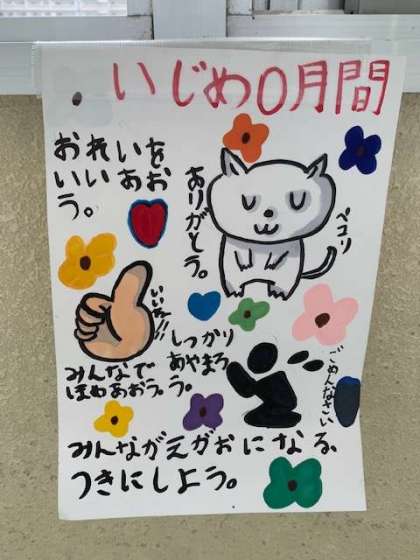 いじめ0月間
おれいを
いいあお
う。
ありがとう。
ペコリ
いいね!!
みんなで
ほめあおう。
しっかり
あやまろ
う。
ごめんなさい
みんながえがおになる、
つきにしよう。